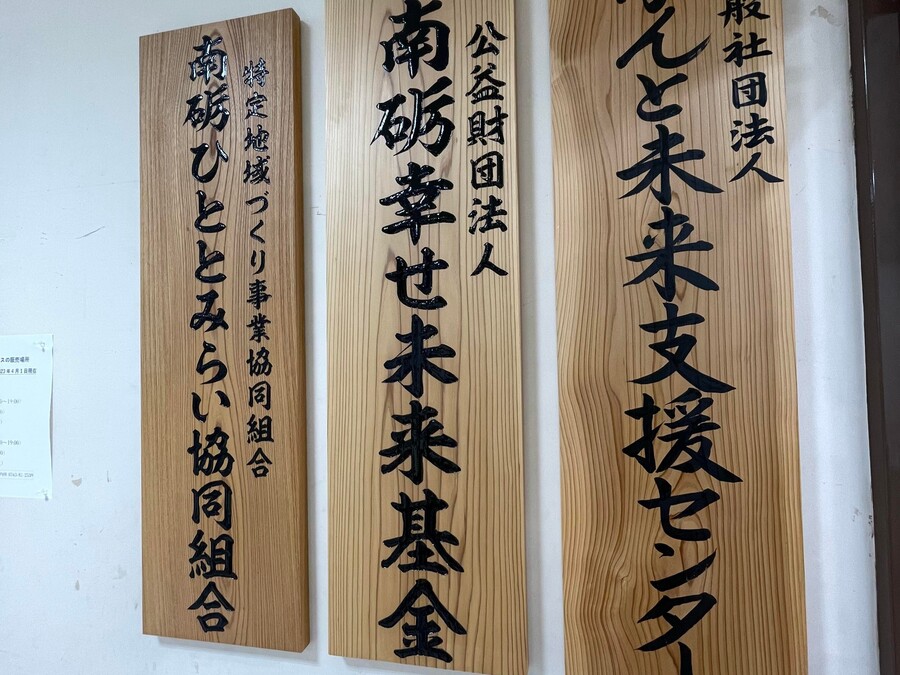 特定地域づくり事業協同組合
南砺ひととみらい協同組合
公益財団法人
南砺幸せ未来基金
般社団法人
なんと未来支援センター
スの販売場所